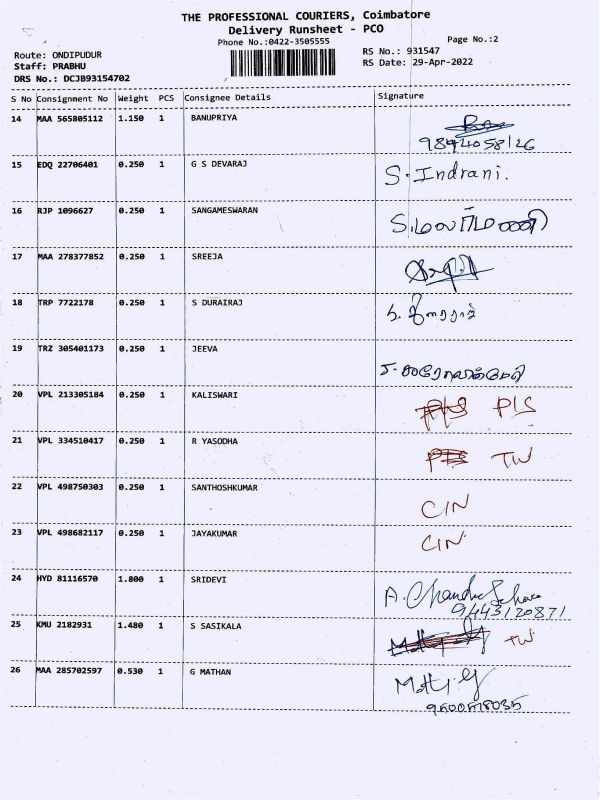 THE PROFESSIONAL COURIERS, Coimbatore
Delivery Runsheet - PCO
Phone No.:0422-3505555
Page No.:2
Route: ONDIPUDUR
RS No.: 931547
Staff: PRABHU
RS Date: 29-Apr-2022
DRS No.: DCJB93154702
S No Consignment No Weight PCS Consignee Details Signature
14 MAA 565805112 1.150 1 BANUPRIYA
9844058126
15 EDQ 22706401 0.250 1 G S DEVARAJ S. Indrani.
16 RJP 1096627 0.250 1 SANGAMESWARAN
17 MAA 278377852 0.250 1 SREEJA
18 TRP 7722178 0.250 1 S DURAIRAJ
19 TRZ 305401173 0.250 1 JEEVA
20 VPL 213305184 0.250 1 KALISWARI P/S
21 VPL 334510417 0.250 1 R YASODHA TW
22 VPL 498750303 0.250 1 SANTHOSHKUMAR CIN
23 VPL 498682117 0.250 1 JAYAKUMAR CIN
24 HYD 81116570 1.800 1 SRIDEVI A. Chandra Sekara
9443120871
25 KMU 2182931 1.480 1 S SASIKALA TW
26 MAA 285702597 0.530 1 G MATHAN